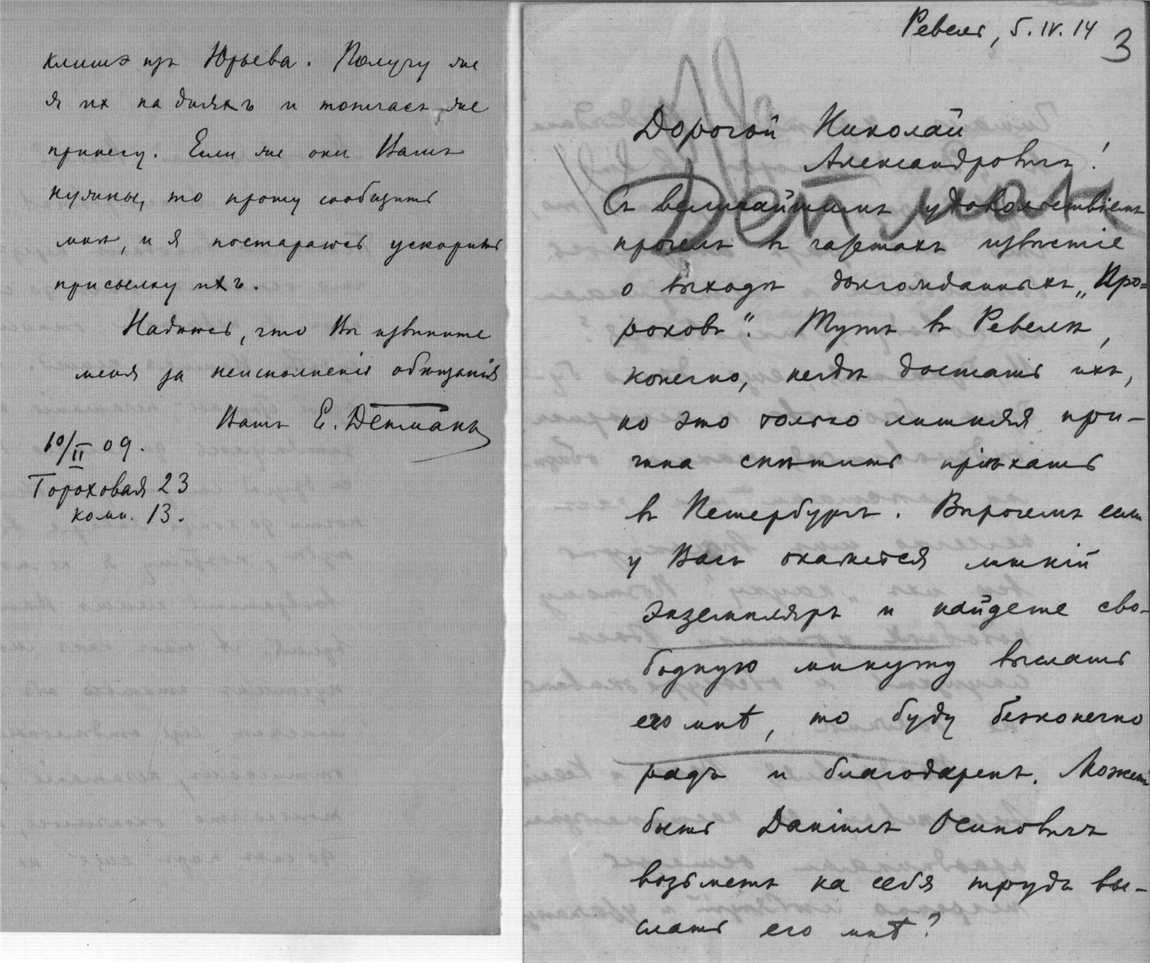 клише изъ Юрьева. Получу же
я ихъ на дняхъ и тотчасъ же
принесу. Если же они Вамъ
нужны, то прошу сообщить
мнѣ, и я постараюсь ускорить
присылку ихъ.
Надѣюсь, что Вы извините
меня за неисполненіе обѣщанія
Вашъ Е. Детманъ
10/II 09.
Гороховая 23
комн. 13.
Ревель, 5.IV.14
3
Дорогой Николай
Александровичъ!
Детман
Съ величайшимъ удовольствіемъ
прочелъ въ газетахъ извѣстіе
о выходѣ долгожданныхъ „Про-
роковъ“. Тутъ въ Ревелѣ,
конечно, негдѣ достать ихъ,
но это только лишняя при-
чина спѣшить пріѣхать
въ Петербургъ. Впрочемъ если
у Васъ окажется лишній
экземпляръ и найдете сво-
бодную минутку выслать
его мнѣ, то буду безконечно
радъ и благодаренъ. Можетъ
быть Даніилъ Осиповичъ
возьметъ на себя трудъ вы-
слать его мнѣ?